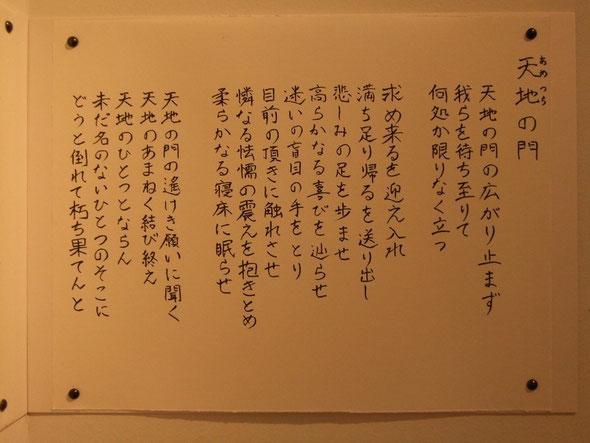 天地の門
あめつち
天地の門の広がり止まず
我らを待ち至りて
何処か限りなく立つ
求め来るを迎え入れ
満ち足り帰るを送り出し
悲しみの足を歩ませ
高らかなる喜びを辿らせ
迷いの盲目の手をとり
目前の頂きに触れさせ
憐なる怯懦の震えを抱きとめ
柔らかなる寝床に眠らせ
天地の門の遙けき願いに聞く
天地のあまねく結び終え
天地のひとつとならん
未だ名のないひとつのそこに
どうと倒れて朽ち果てんと